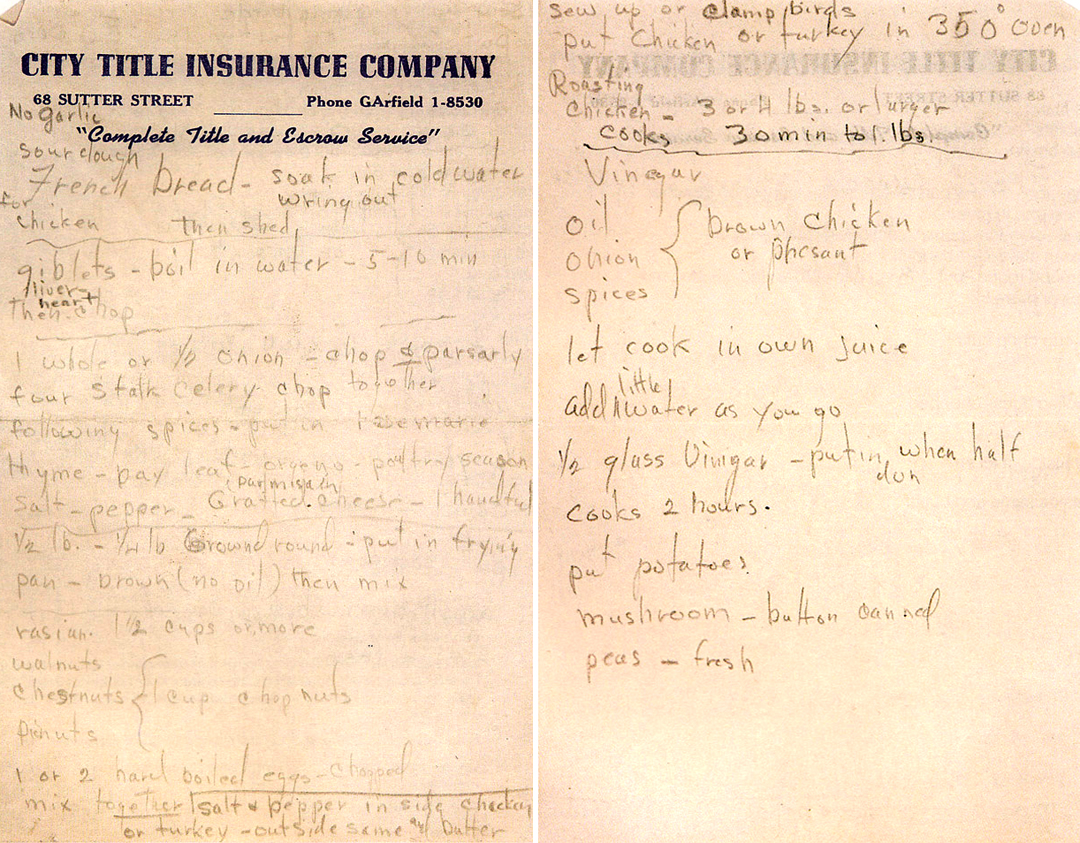 CITY TITLE INSURANCE COMPANY
68 SUTTER STREET Phone GArfield 1-8530
No garlic
"Complete Title and Escrow Service"
sour dough
French Bread - soak in cold water
wring out
for
chicken then shed
giblets - boil in water - 5-10 min
liver -
heart
then chop
1 whole or 1/2 onion - chop & parsarly
four stalk celery chop together
following spices - put in rosemarie
thyme - bay leaf - oregeno - poltry season
(parmisain)
salt - pepper - Gratted cheese - 1 handful
1/2 lb. - 1/4 lb Ground round - put in frying
pan - brown (no oil) then mix
rasian. 1 1/2 cups or more
walnuts
chestnuts 1 cup chop nuts
pinuts
1 or 2 hard boiled eggs - chopped
mix together salt & pepper in side chicken
or turkey - outside same and butter
sew up or clamp birds
put chicken or turkey in 350° oven
Roasting
chicken - 3 or 4 lbs. or larger
cooks 30 min to 1 lbs.
Vinegar
oil brown chicken
onion or phesant
spices
let cook in own juice
little
add water as you go
1/2 glass Vinigar - put in when half
don
cooks 2 hours.
put potatoes
mushroom - button canned
peas - fresh